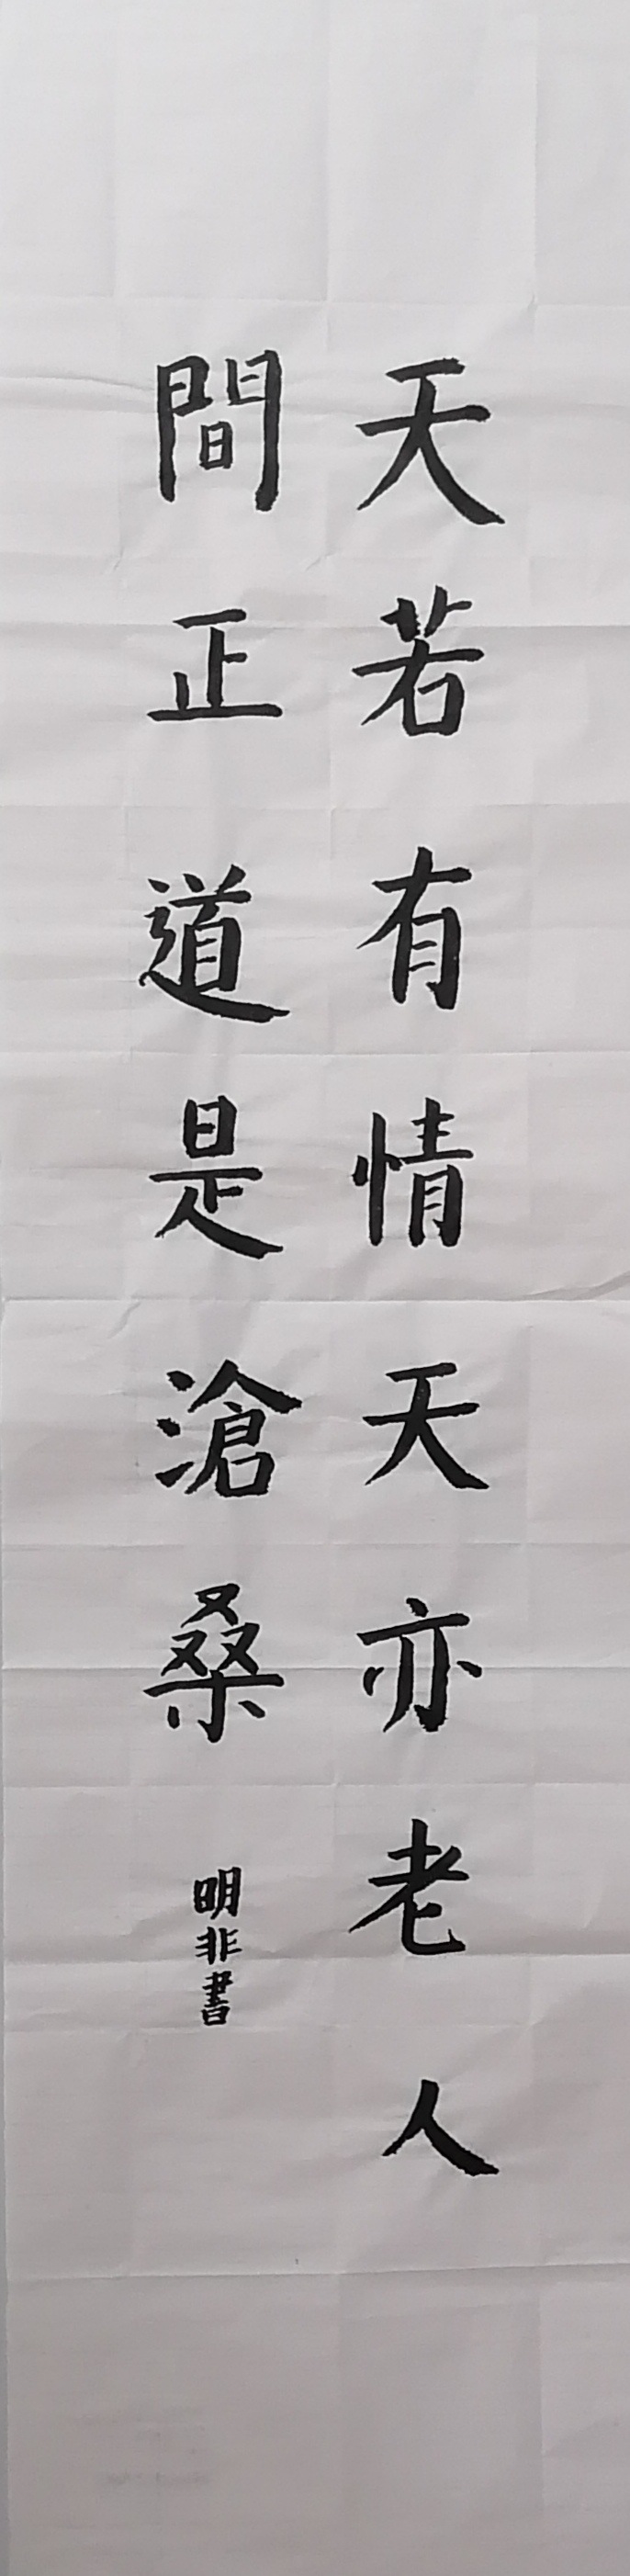 天若有情天亦老人
間正道是滄桑
明非書